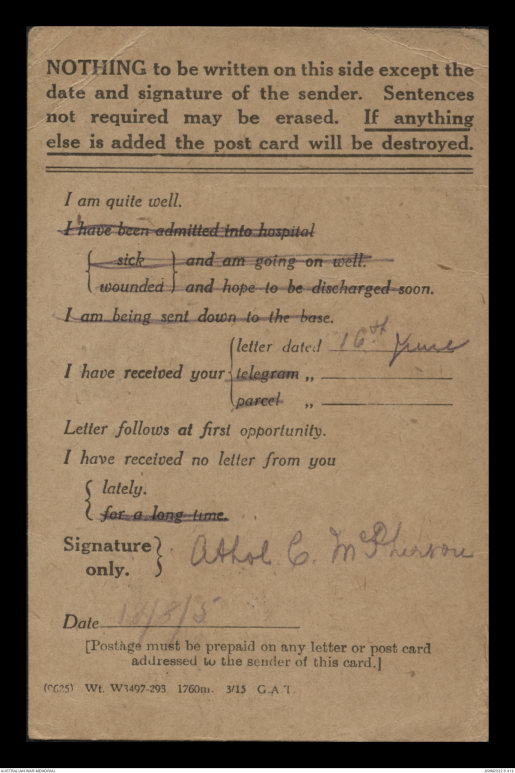 NOTHING to be written on this side except the
date and signature of the sender. Sentences
not required may be erased. If anything
else is added the post card will be destroyed.
I am quite well.
I have been admitted into hospital
sick } and am going on well.
wounded } and hope to be discharged soon.
I am being sent down to the base.
letter dated 16th June
I have received your telegram ,,
parcel ,,
Letter follows at first opportunity.
I have received no letter from you
lately.
for a long time.
Signature
only. } Athol C. McPherson
Date 18/8/5
[Postage must be prepaid on any letter or post card
addressed to the sender of this card.]
Wt. W3497-293 1760m. 3/15 G.A.T.
AUSTRALIAN WAR MEMORIAL